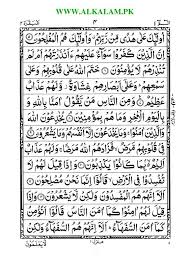 WWW.ALKALAM.PK
اُولٰٓئِكَ عَلٰى هُدًى مِّنْ رَّبِّهِمْ وَاُولٰٓئِكَ هُمُ الْمُفْلِحُوْنَ
اِنَّ الَّذِيْنَ كَفَرُوْا سَوَآءٌ عَلَيْهِمْ ءَاَنْذَرْتَهُمْ اَمْ لَمْ
تُنْذِرْهُمْ لَا يُؤْمِنُوْنَ خَتَمَ اللّٰهُ عَلٰى قُلُوْبِهِمْ وَعَلٰى
سَمْعِهِمْ وَعَلٰٓى اَبْصَارِهِمْ غِشَاوَةٌ وَّلَهُمْ عَذَابٌ
عَظِيْمٌ وَمِنَ النَّاسِ مَنْ يَّقُوْلُ اٰمَنَّا بِاللّٰهِ
وَبِالْيَوْمِ الْاٰخِرِ وَمَا هُمْ بِمُؤْمِنِيْنَ يُخٰدِعُوْنَ اللّٰهَ
وَالَّذِيْنَ اٰمَنُوْا وَمَا يَخْدَعُوْنَ اِلَّآ اَنْفُسَهُمْ وَمَا يَشْعُرُوْنَ
فِيْ قُلُوْبِهِمْ مَّرَضٌ فَزَادَهُمُ اللّٰهُ مَرَضًا وَلَهُمْ عَذَابٌ
اَلِيْمٌ بِمَا كَانُوْا يَكْذِبُوْنَ وَاِذَا قِيْلَ لَهُمْ لَا
تُفْسِدُوْا فِى الْاَرْضِ قَالُوْٓا اِنَّمَا نَحْنُ مُصْلِحُوْنَ
اَلَآ اِنَّهُمْ هُمُ الْمُفْسِدُوْنَ وَلٰكِنْ لَّا يَشْعُرُوْنَ وَاِذَا
قِيْلَ لَهُمْ اٰمِنُوْا كَمَآ اٰمَنَ النَّاسُ قَالُوْٓا اَنُؤْمِنُ
كَمَآ اٰمَنَ السُّفَهَآءُ اَلَآ اِنَّهُمْ هُمُ السُّفَهَآءُ وَلٰكِنْ
لَّا يَعْلَمُوْنَ